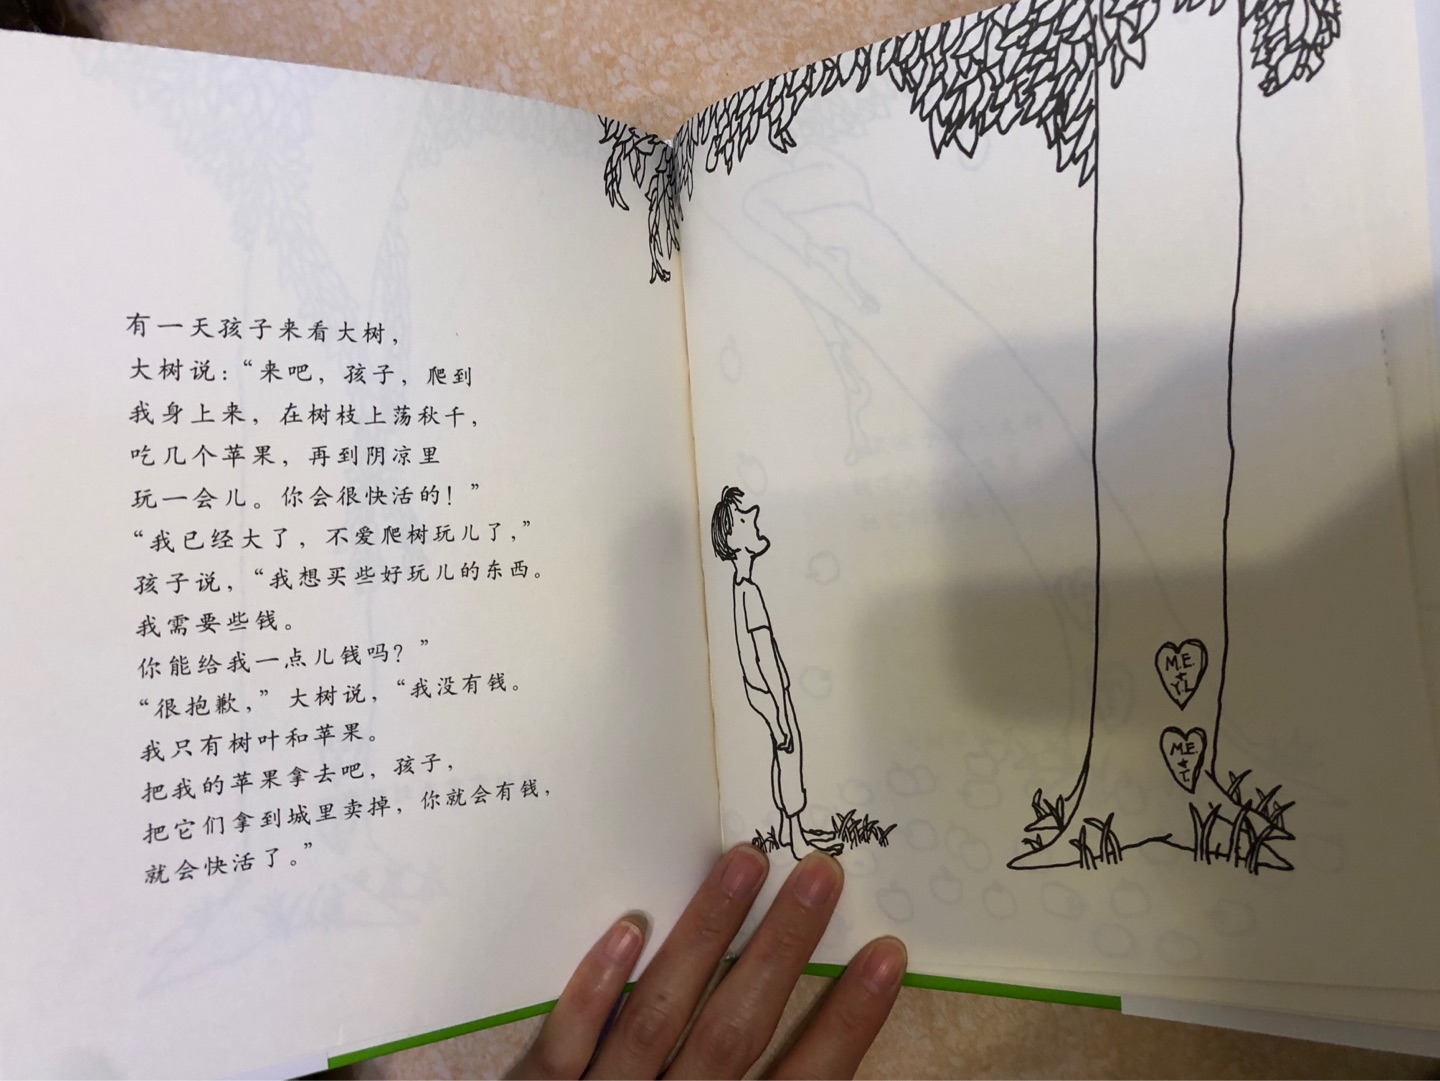 有一天孩子来看大树，
大树说：“来吧，孩子，爬到
我身上来，在树枝上荡秋千，
吃几个苹果，再到阴凉里
玩一会儿。你会很快活的！”
“我已经大了，不爱爬树玩儿了，”
孩子说，“我想买些好玩儿的东西。
我需要些钱。
你能给我一点儿钱吗？”
“很抱歉，”大树说，“我没有钱。
我只有树叶和苹果。
把我的苹果拿去吧，孩子，
把它们拿到城里卖掉，你就会有钱，
就会快活了。”
M.E.
+
Y.L.
M.E.
+
T.